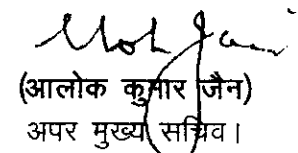 (आलोक कुमार जैन)
अपर मुख्य सचिव।